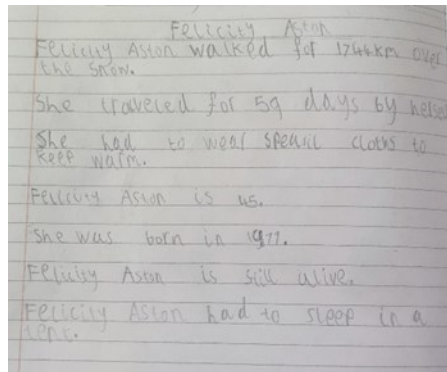 Felicity Aston
Felicity Aston walked for 1744km over
the snow.
She traveled for 59 days by herself
She had to wear speasil cloths to
keep warm.
Felicity Aston is 45.
She was born in 1977.
Felicisy Aston is still alive.
Felicity Aston had to sleep in a
tent.